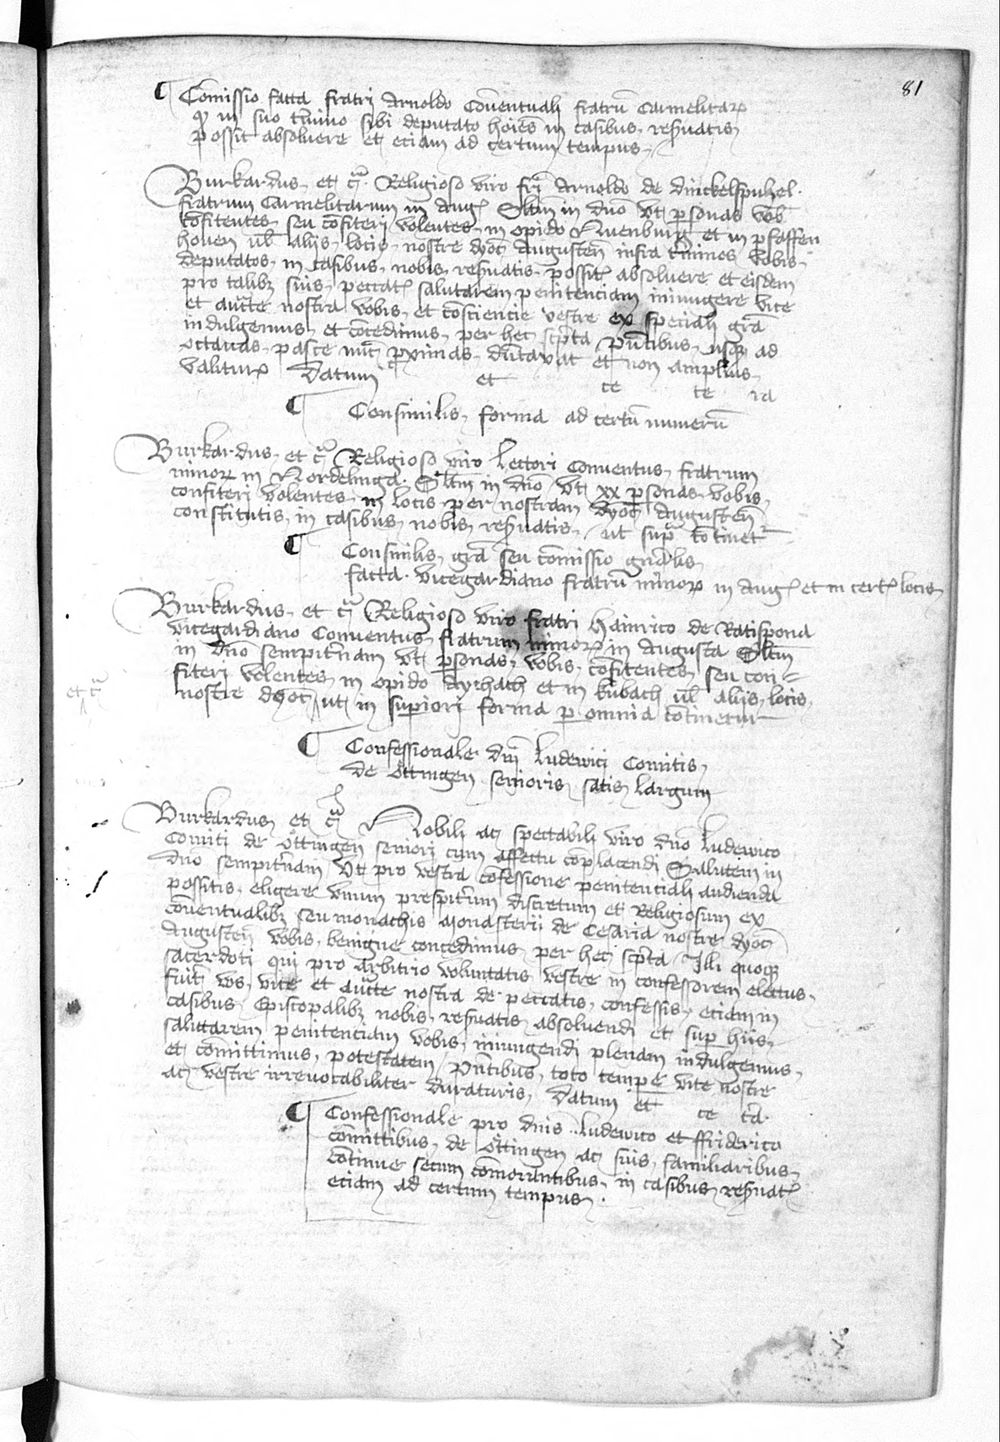 81
Comissio facta fratri Arnoldo Coventuali fratrū Carmelitarꝝ
qꝫ in suo tmino sibi deputato hoiēs in casibus resvatis
possit absolvere et eciam ad certum tempus
Burkardus et cꝫ Religioso viro fri Arnoldo de Dinckelspuhel
fratrum Carmelitarum in Aug Sltm in dno Vt psonas vob
cōfitentes seu cōfiteri volentes in opido et in pfaffen
hoven ul alijs locis nostre dyoc Augusten infra tminos vobis
deputatos in casibus nobis resvatis possit absolvere et eisdem
pro talibꝫ suis peccat salutarem penitenciam iniungere vice
et aucte nostra vobis et cōsciencie vestre ex speciali gra
indulgemus et cōcedimus per hec scpta pntibus usqꝫ ad
octavas pasce nuc pximas dutaxat et non amplius
valituꝝ Datum et ce te ra
Consimilis forma ad certū numerū
Burkardus et cꝫ Religioso viro lectori Conventus fratrum
minoꝝ in Nordelinga Sltm in dno Vt xx psonas vobis
confiteri volentes in locis per nostram dyoc Augusten
constitutis in casibus nobis resvatis ut supra cōtinet
Consimilis gra seu cōmissio gnalis
facta vicegardiano fratrū minoꝝ in Aug et in cert locis
Burkardus et cꝫ Religioso viro fratri Hainrico de Ratispona
vicegardiano Conventus fratrum minoꝝ in Augusta Sltm
in dno sempitnam Vt psonas vobis cōfitentes seu con
fiteri volentes in opido Aychach et in kubach ul alijs locis
et cꝫ
nostre dyoc ut in superiori forma p omnia cōtinetur
Confessionale dni Ludewici Comitis
de Ottingen senioris satis largum
Burkardus et cꝫ Nobili ac spectabili viro dno Ludewico
Comiti de Ottingen seniori cum affectu cōplacendi Salutem in
dno sempitnam Vt pro vestra cōfessione penitenciali audienda
possitis eligere unum prespitrum discretum et Religiosum ex
cōventualibꝫ seu monachis Monasterii de Cesaria nostre dyoc
Augusten vobis benigne concedimus per hec scpta Illi quoqꝫ
sacerdoti qui pro arbitrio voluntatis vestre in confessorem electus
fuit vos vice et aucte nostra de peccatis confessis eciam in
casibus Episcopalibꝫ nobis resvatis absolvendi et sup hiis
salutarem penitenciam vobis iniungendi plenam indulgemus
et cōmittimus potestatem pntibus toto tempore vite nostre
ac vestre irrevocabiliter duraturis Datum et ce tra
Confessionale pro dnis Ludewico et ffriderico
cōmittibus de Ottingen ac suis familiaribus
cōtinue secum cōmorantibus in casibus resvat
eciam ad certum tempus